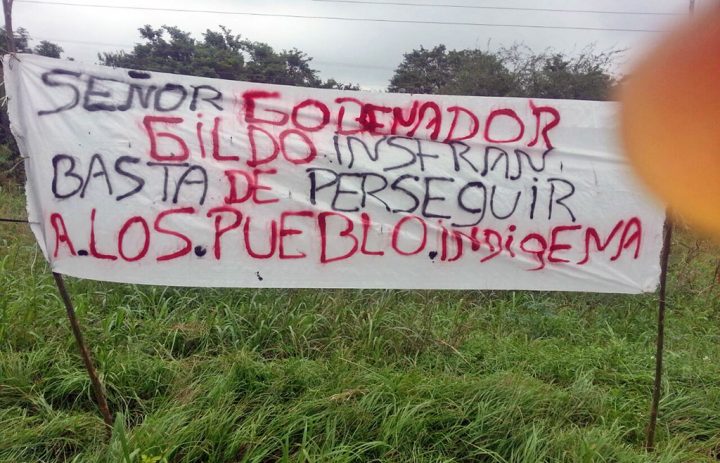 SEÑOR GOBENADOR
GILDO INSFRAN.
BASTA DE PERSEGUIR
A.LOS.PUEBLO.INDIGENA